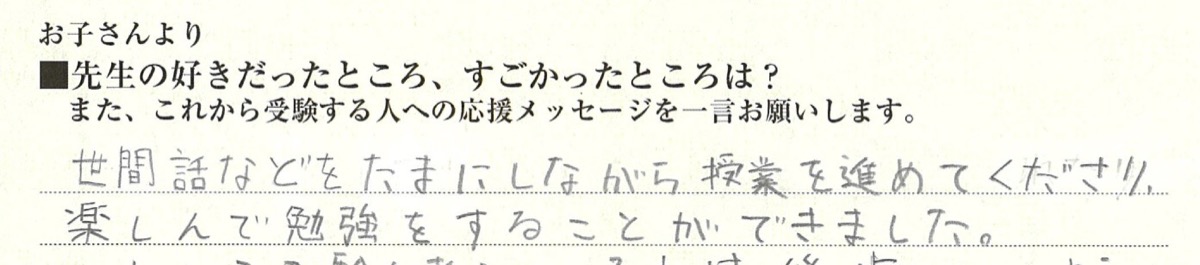 お子さんより
■先生の好きだったところ、すごかったところは？
また、これから受験する人への応援メッセージを一言お願いします。
世間話などをたまにしながら授業を進めてくださり、
楽しんで勉強をすることができました。